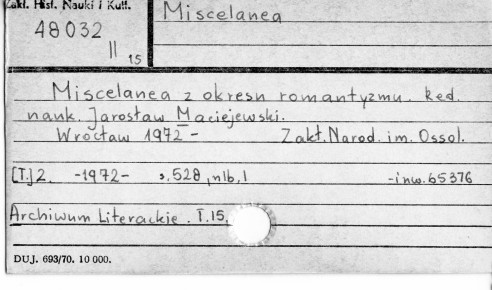 Zakł. Hist. Nauki i Kult.
Miscelanea
48032
II 15
Miscelanea z okresu romantyzmu. Red.
nauk. Jarosław Maciejewski.
Wrocław 1972 - Zakł. Narod. im. Ossol.
[T.] 2. -1972- s. 528, nlb. 1 -inw. 65376
Archiwum Literackie. T. 15.
DUJ. 693/70. 10 000.